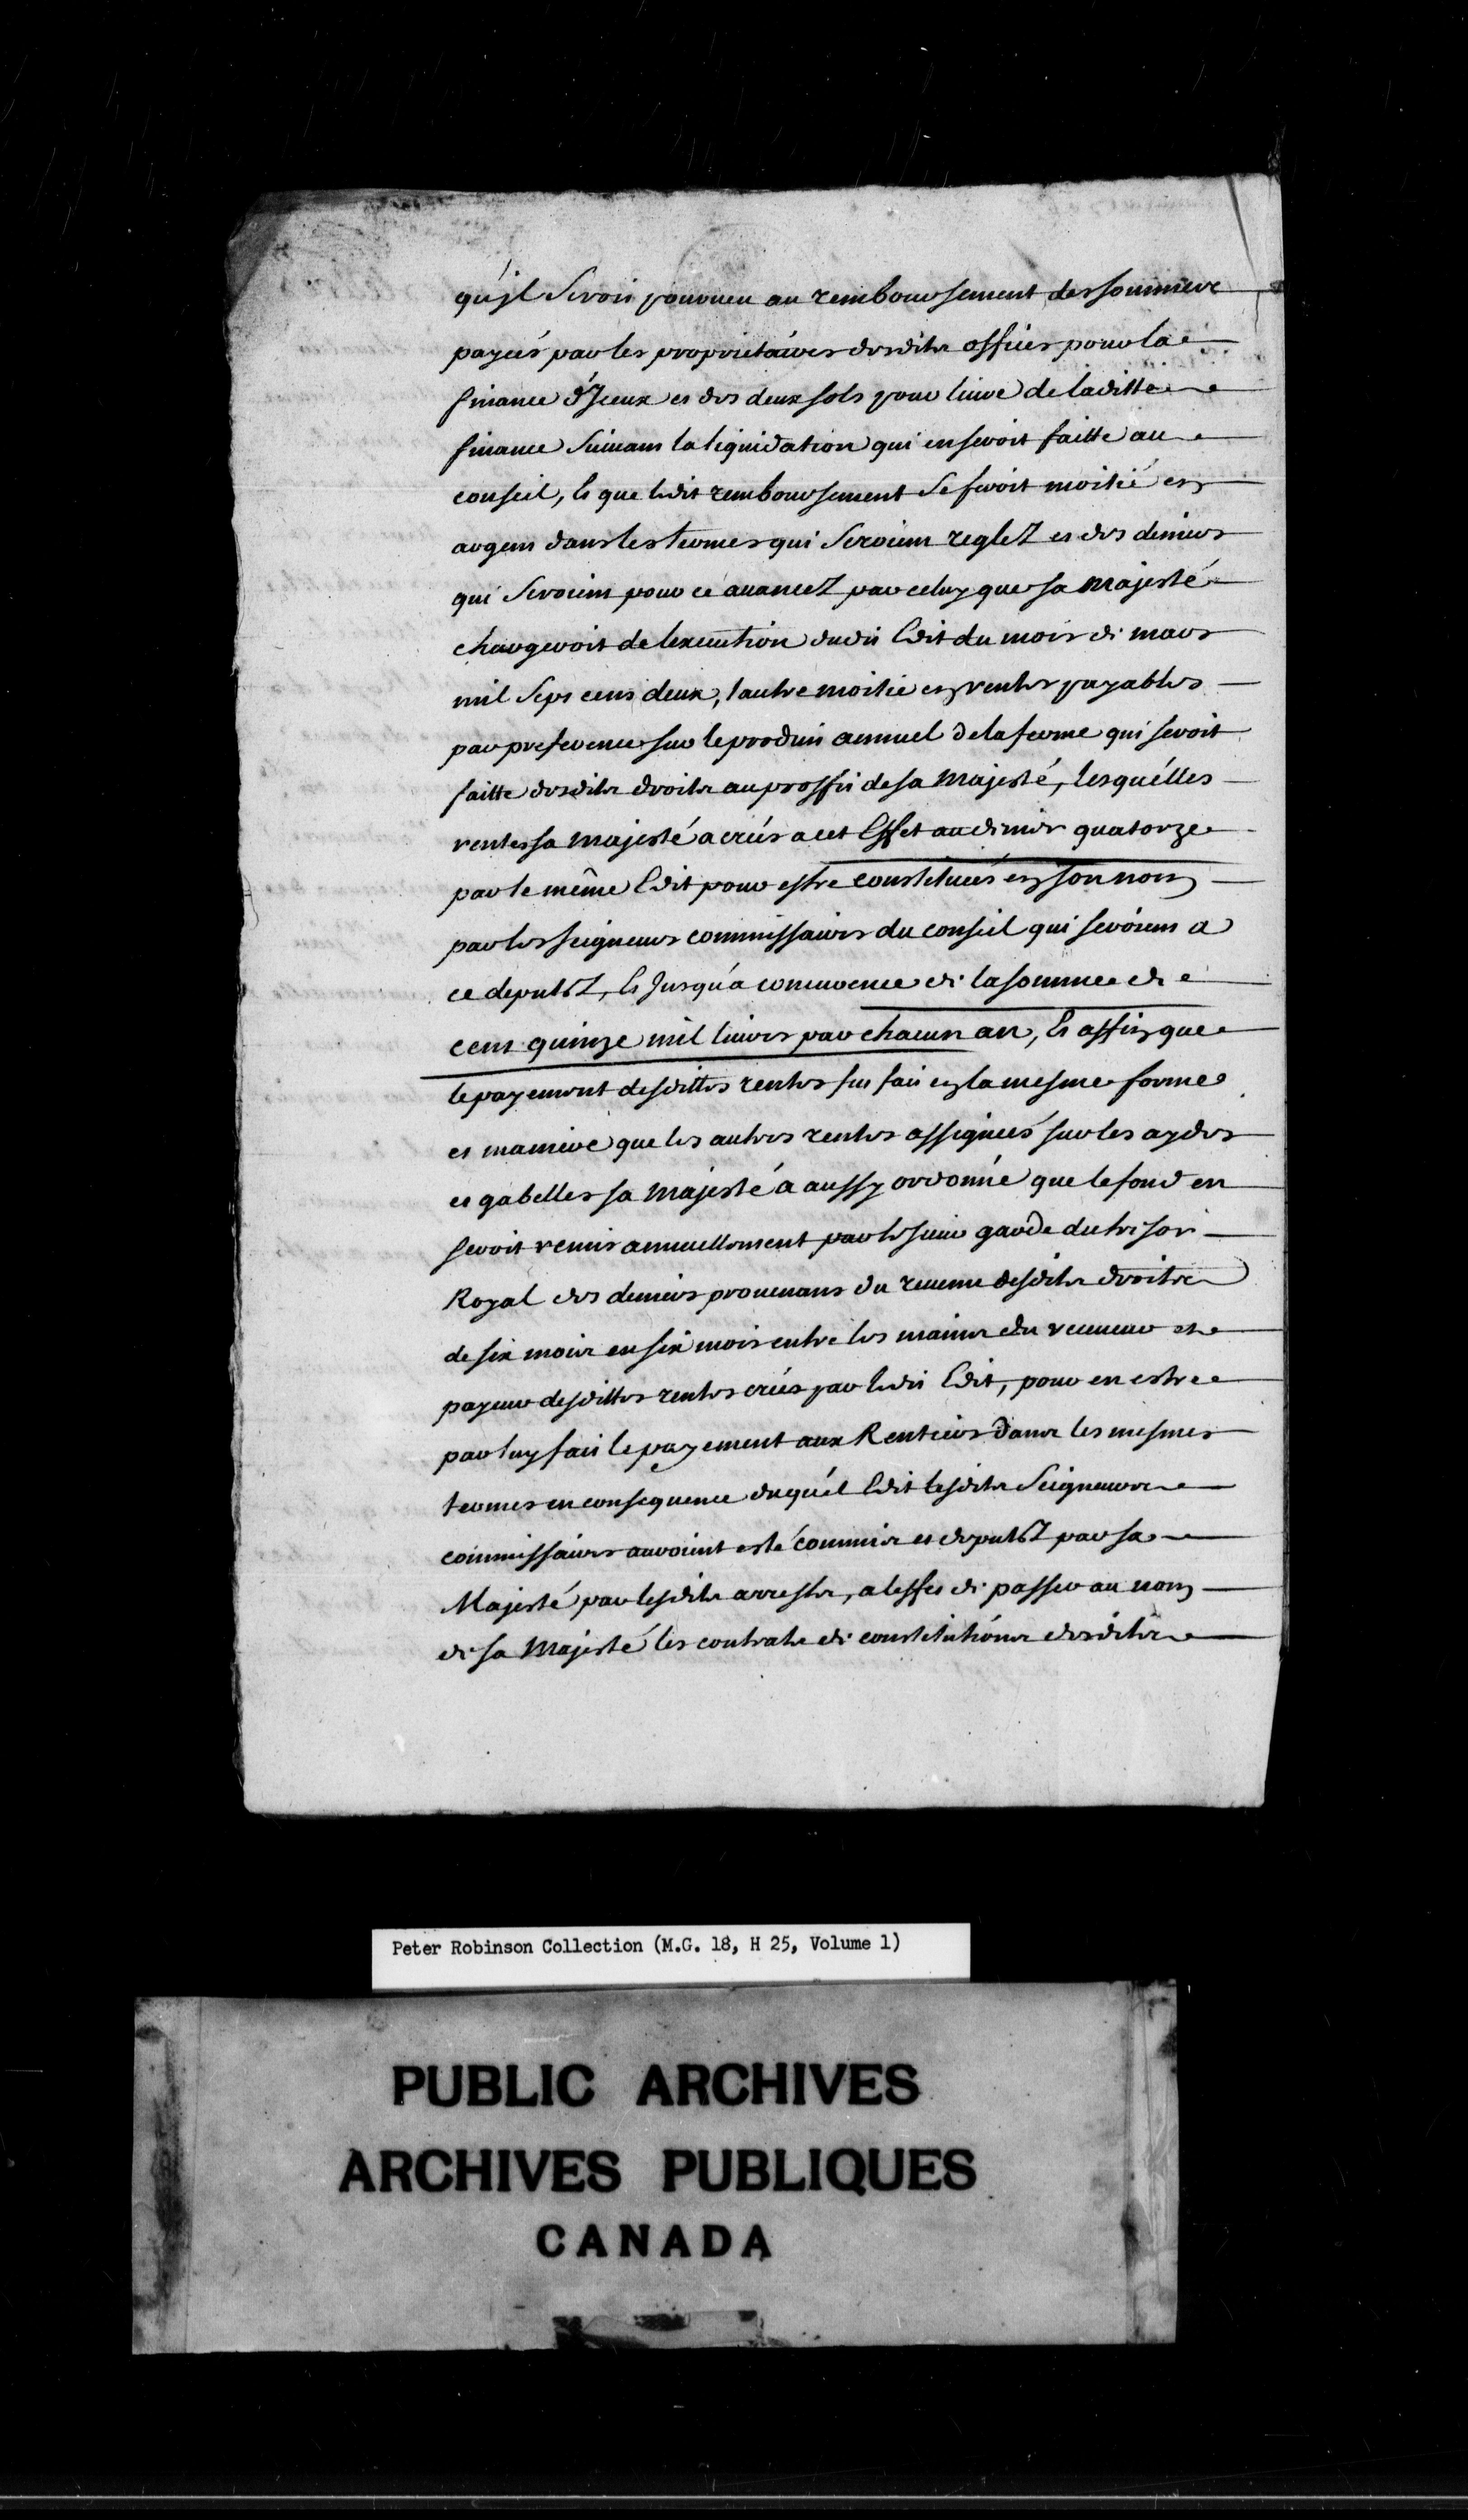 qu'jl Seroit pourveu au remboursement des sommes
payées par les proprietaires desdits offices pour la
finance d'Jceux et des deux sols pour livre de laditte
finance Suivant la liquidation qui en seroit faitte au
conseil, Et que ledit remboursement Se feroit moitié en
argent dans les termes qui Seroient reglez et des deniers
qui Seroient pour ce avancez par celuy que sa Majesté
chargeroit de lexecution dudit Edit du mois de mars
mil Sept cens deux, lautre moitié en rentes payables
par preference sur le produit annuel de la ferme qui seroit
faitte desdits droits au proffit de sa Majesté, lesquélles
rentes sa Majesté a creés a cet Effet au denier quatorze
par le même Edit pour estre constituées en son nom
par les seigneurs commissaires du conseil qui seroient a
ce deputez, Et Jusqu'a concurence de la somme de
cent quinze mil livres par chacun an, Et affin que
le payement desdittes rentes fut fait en la mesme forme
et maniere que les autres rentes assignées sur les aydes
et gabelles sa Majesté a aussy ordonné que le fond en
seroit remis annuellement par le sieur garde du tresor
Royal des deniers provenans du revenu desdits droits
de six mois en six mois entre les mains du receveur et
payeur desdittes rentes creés par ledit Edit, pour en estre
par luy fait le payement aux Rentiers dans les mesmes
termes en consequence duquél Edit lesdits Seigneurs
commissaires auroient esté commis et deputez par sa
Majesté par lesdits arrests, a leffet de passer au nom
de sa Majesté les contrats de constitutions desdites
Peter Robinson Collection (M.G. 18, H 25, Volume 1)
PUBLIC ARCHIVES
ARCHIVES PUBLIQUES
CANADA